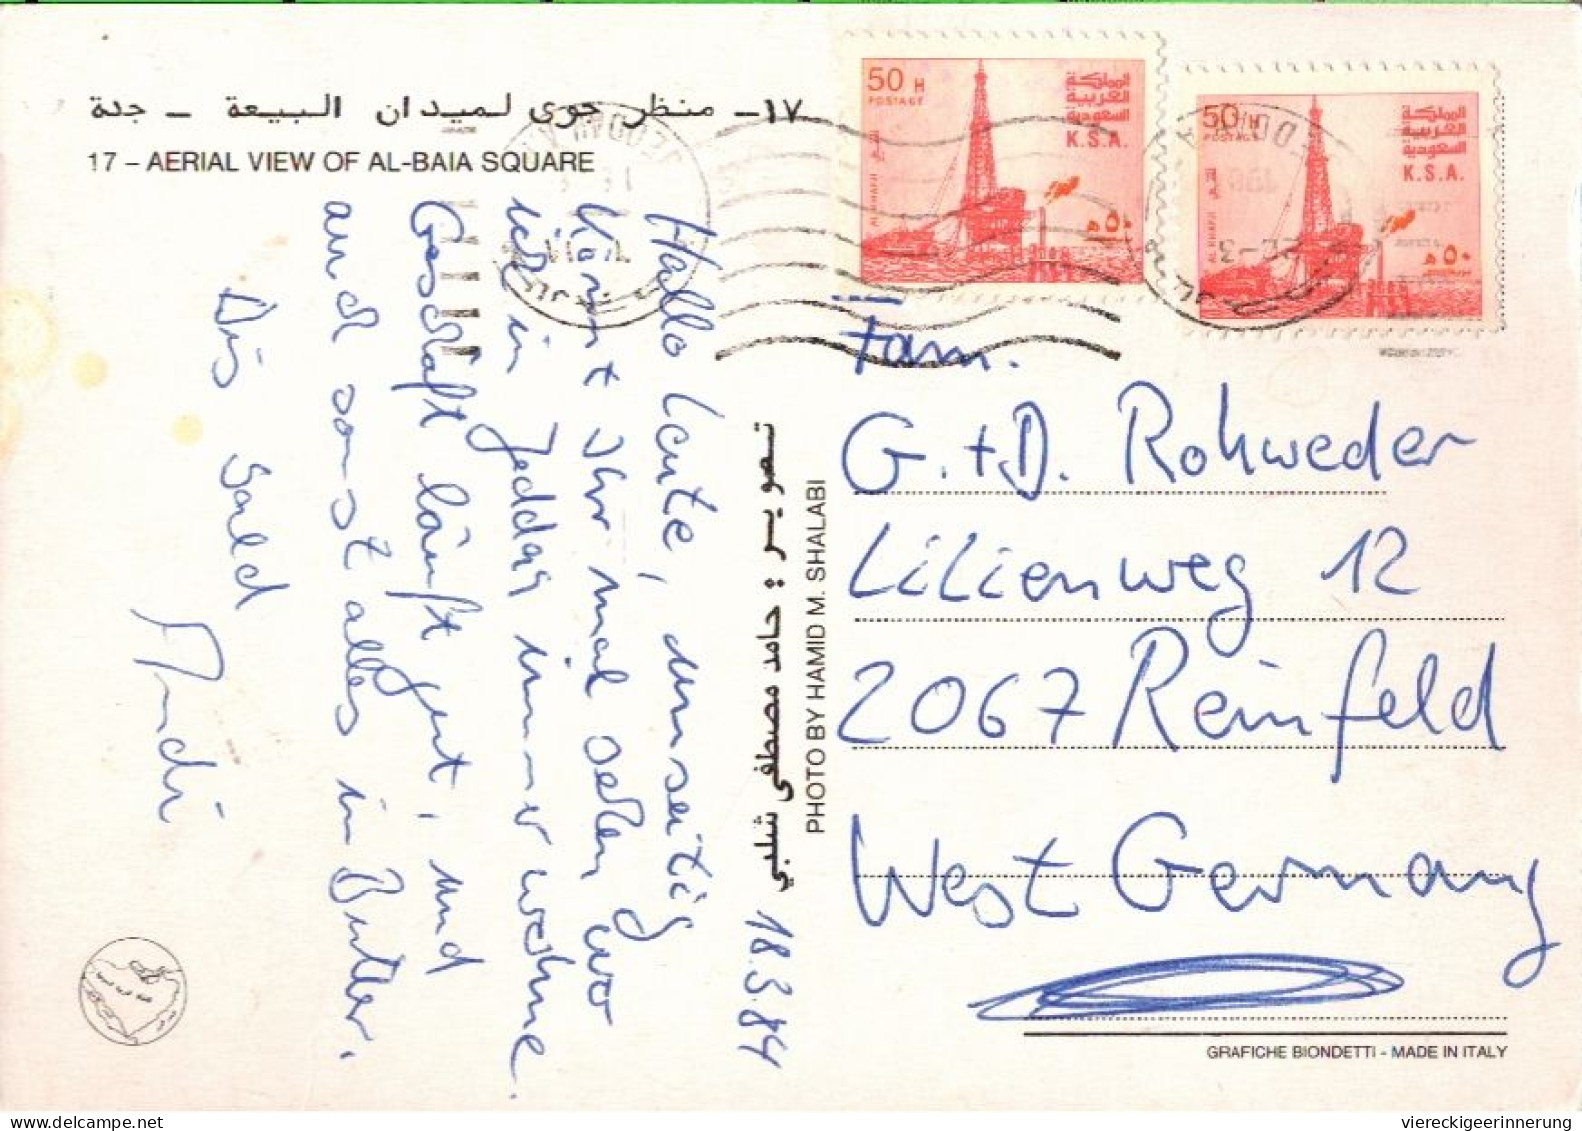 ١٧ - منظر جوى لميدان البيعة - جدة
17 – AERIAL VIEW OF AL-BAIA SQUARE
50 H
POSTAGE
المملكة
العربية
السعودية
K.S.A.
AL KHAFJI
٥٠ هـ
50 H
POSTAGE
المملكة
العربية
السعودية
K.S.A.
AL KHAFJI
٥٠ هـ
18.3.84
Hallo Leute, umseitig
könnt Ihr mal sehen, wo
ich in Jeddah immer wohne.
Geschäft läuft gut, und
auch sonst alles in Butter.
Bis bald
Andi
تصوير : حامد مصطفى شلبي
PHOTO BY HAMID M. SHALABI
Fam.
G.+D. Rohweder
Lilienweg 12
2067 Reinfeld
West Germany
GRAFICHE BIONDETTI - MADE IN ITALY
delcampe.net
viereckigeerinnerung